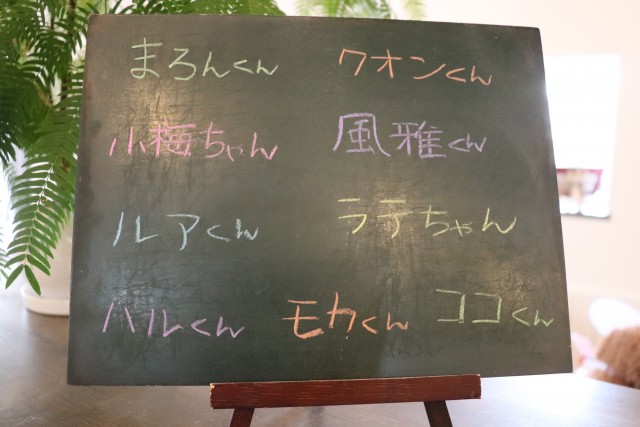 まろんくん クオンくん
小梅ちゃん 風雅くん
ルアくん ラテちゃん
ハルくん モカくん ココくん